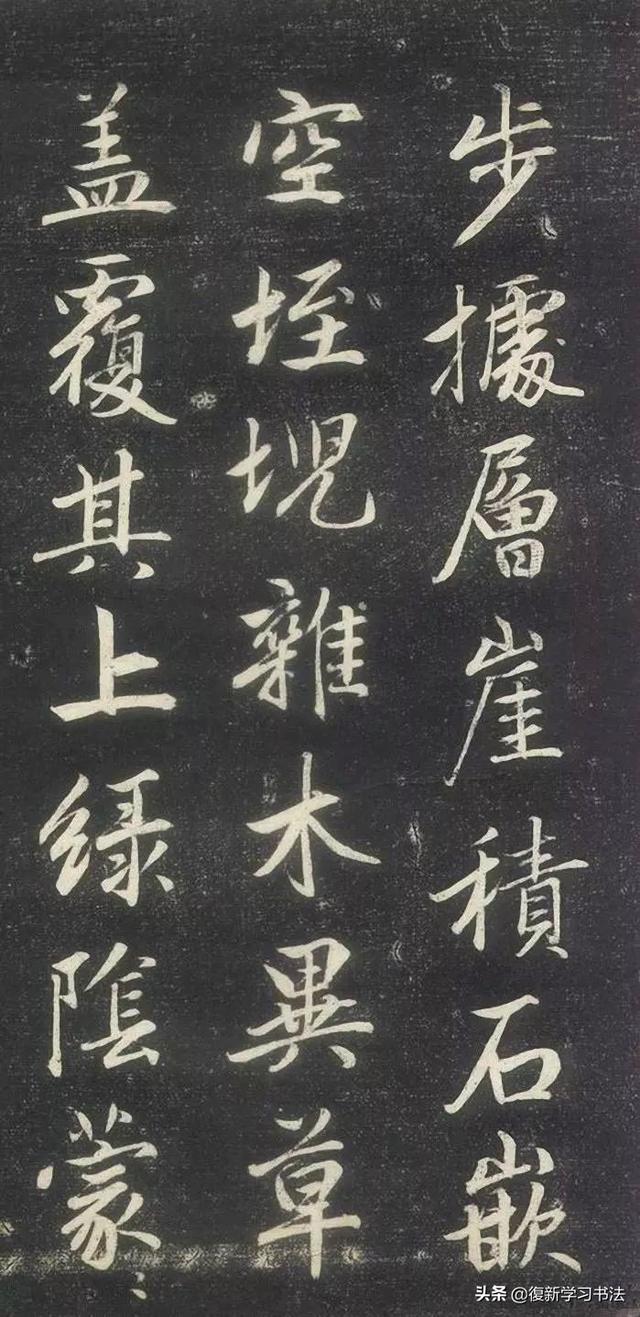 步據層崖積石嵌
空垤堄雜木異草
盖覆其上緑陰蒙〻
头条 @復新学习书法